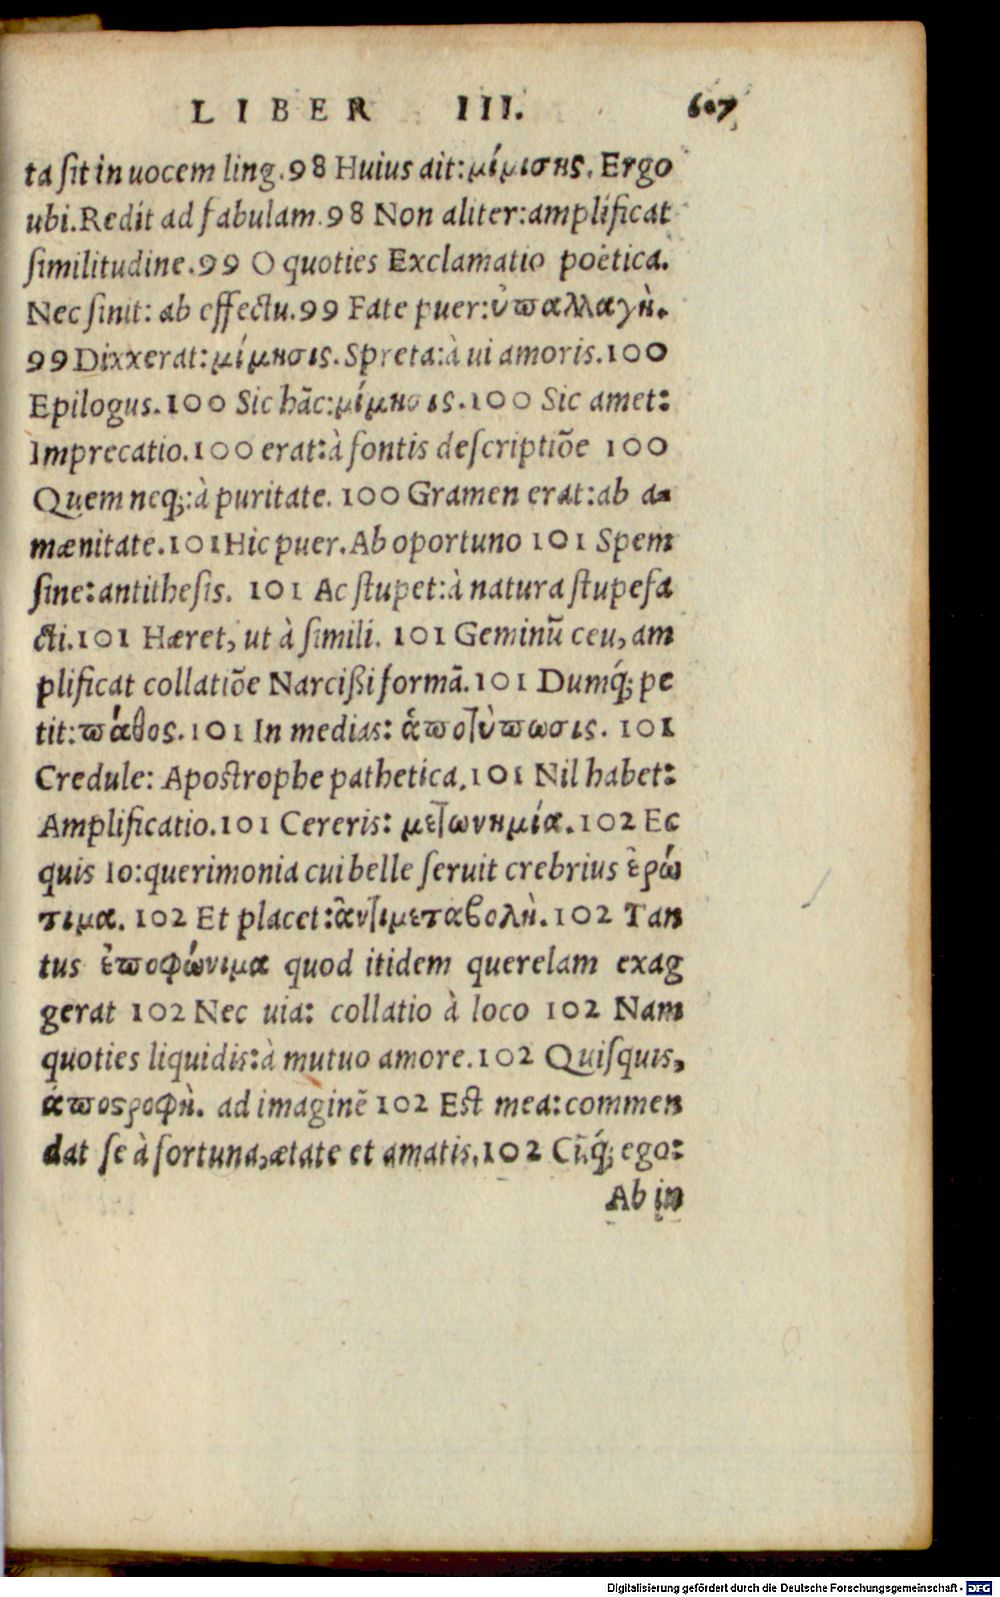 LIBER III. 607
ta ſit in uocem ling.98 Huius ait:μίμισης. Ergo
ubi.Redit ad fabulam.98 Non aliter:amplificat
ſimilitudine.99 O quoties Exclamatio poëtica.
Nec ſinit: ab effectu.99 Fate puer:ὑπαλλαγὴ.
99 Dixxerat:μίμησις.Spreta:à ui amoris.100
Epilogus.100 Sic hãc:μίμησις.100 Sic amet:
Imprecatio.100 erat:à fontis deſcriptiõe 100
Quem neq;:à puritate. 100 Gramen erat:ab a-
mænitate.101 Hic puer.Ab oportuno 101 Spem
ſine:antitheſis. 101 Ac ſtupet:à natura ſtupefa
cti.101 Hæret, ut à ſimili. 101 Geminũ ceu, am
plificat collatiõe Narciſſi formã.101 Dumq́; pe
tit:πάθος.101 In medias: ἁποτὺπωσις. 101
Credule: Apoſtrophe pathetica.101 Nil habet:
Amplificatio.101 Cereris: μετωνημία.102 Ec
quis Io:querimonia cui belle ſeruit crebrius ἐρώ
τιμα. 102 Et placet:ἂντιμεταβολὴ.102 Tan
tus ἐποφώνιμα quod itidem querelam exag
gerat 102 Nec uia: collatio à loco 102 Nam
quoties liquidis:à mutuo amore.102 Quiſquis,
ἀποςροφὴ. ad imaginẽ 102 Eſt mea:commen
dat ſe à fortuna,ætate et amatis.102 Cũq́; ego:
Ab in
Digitalisierung gefördert durch die Deutsche Forschungsgemeinschaft - DFG